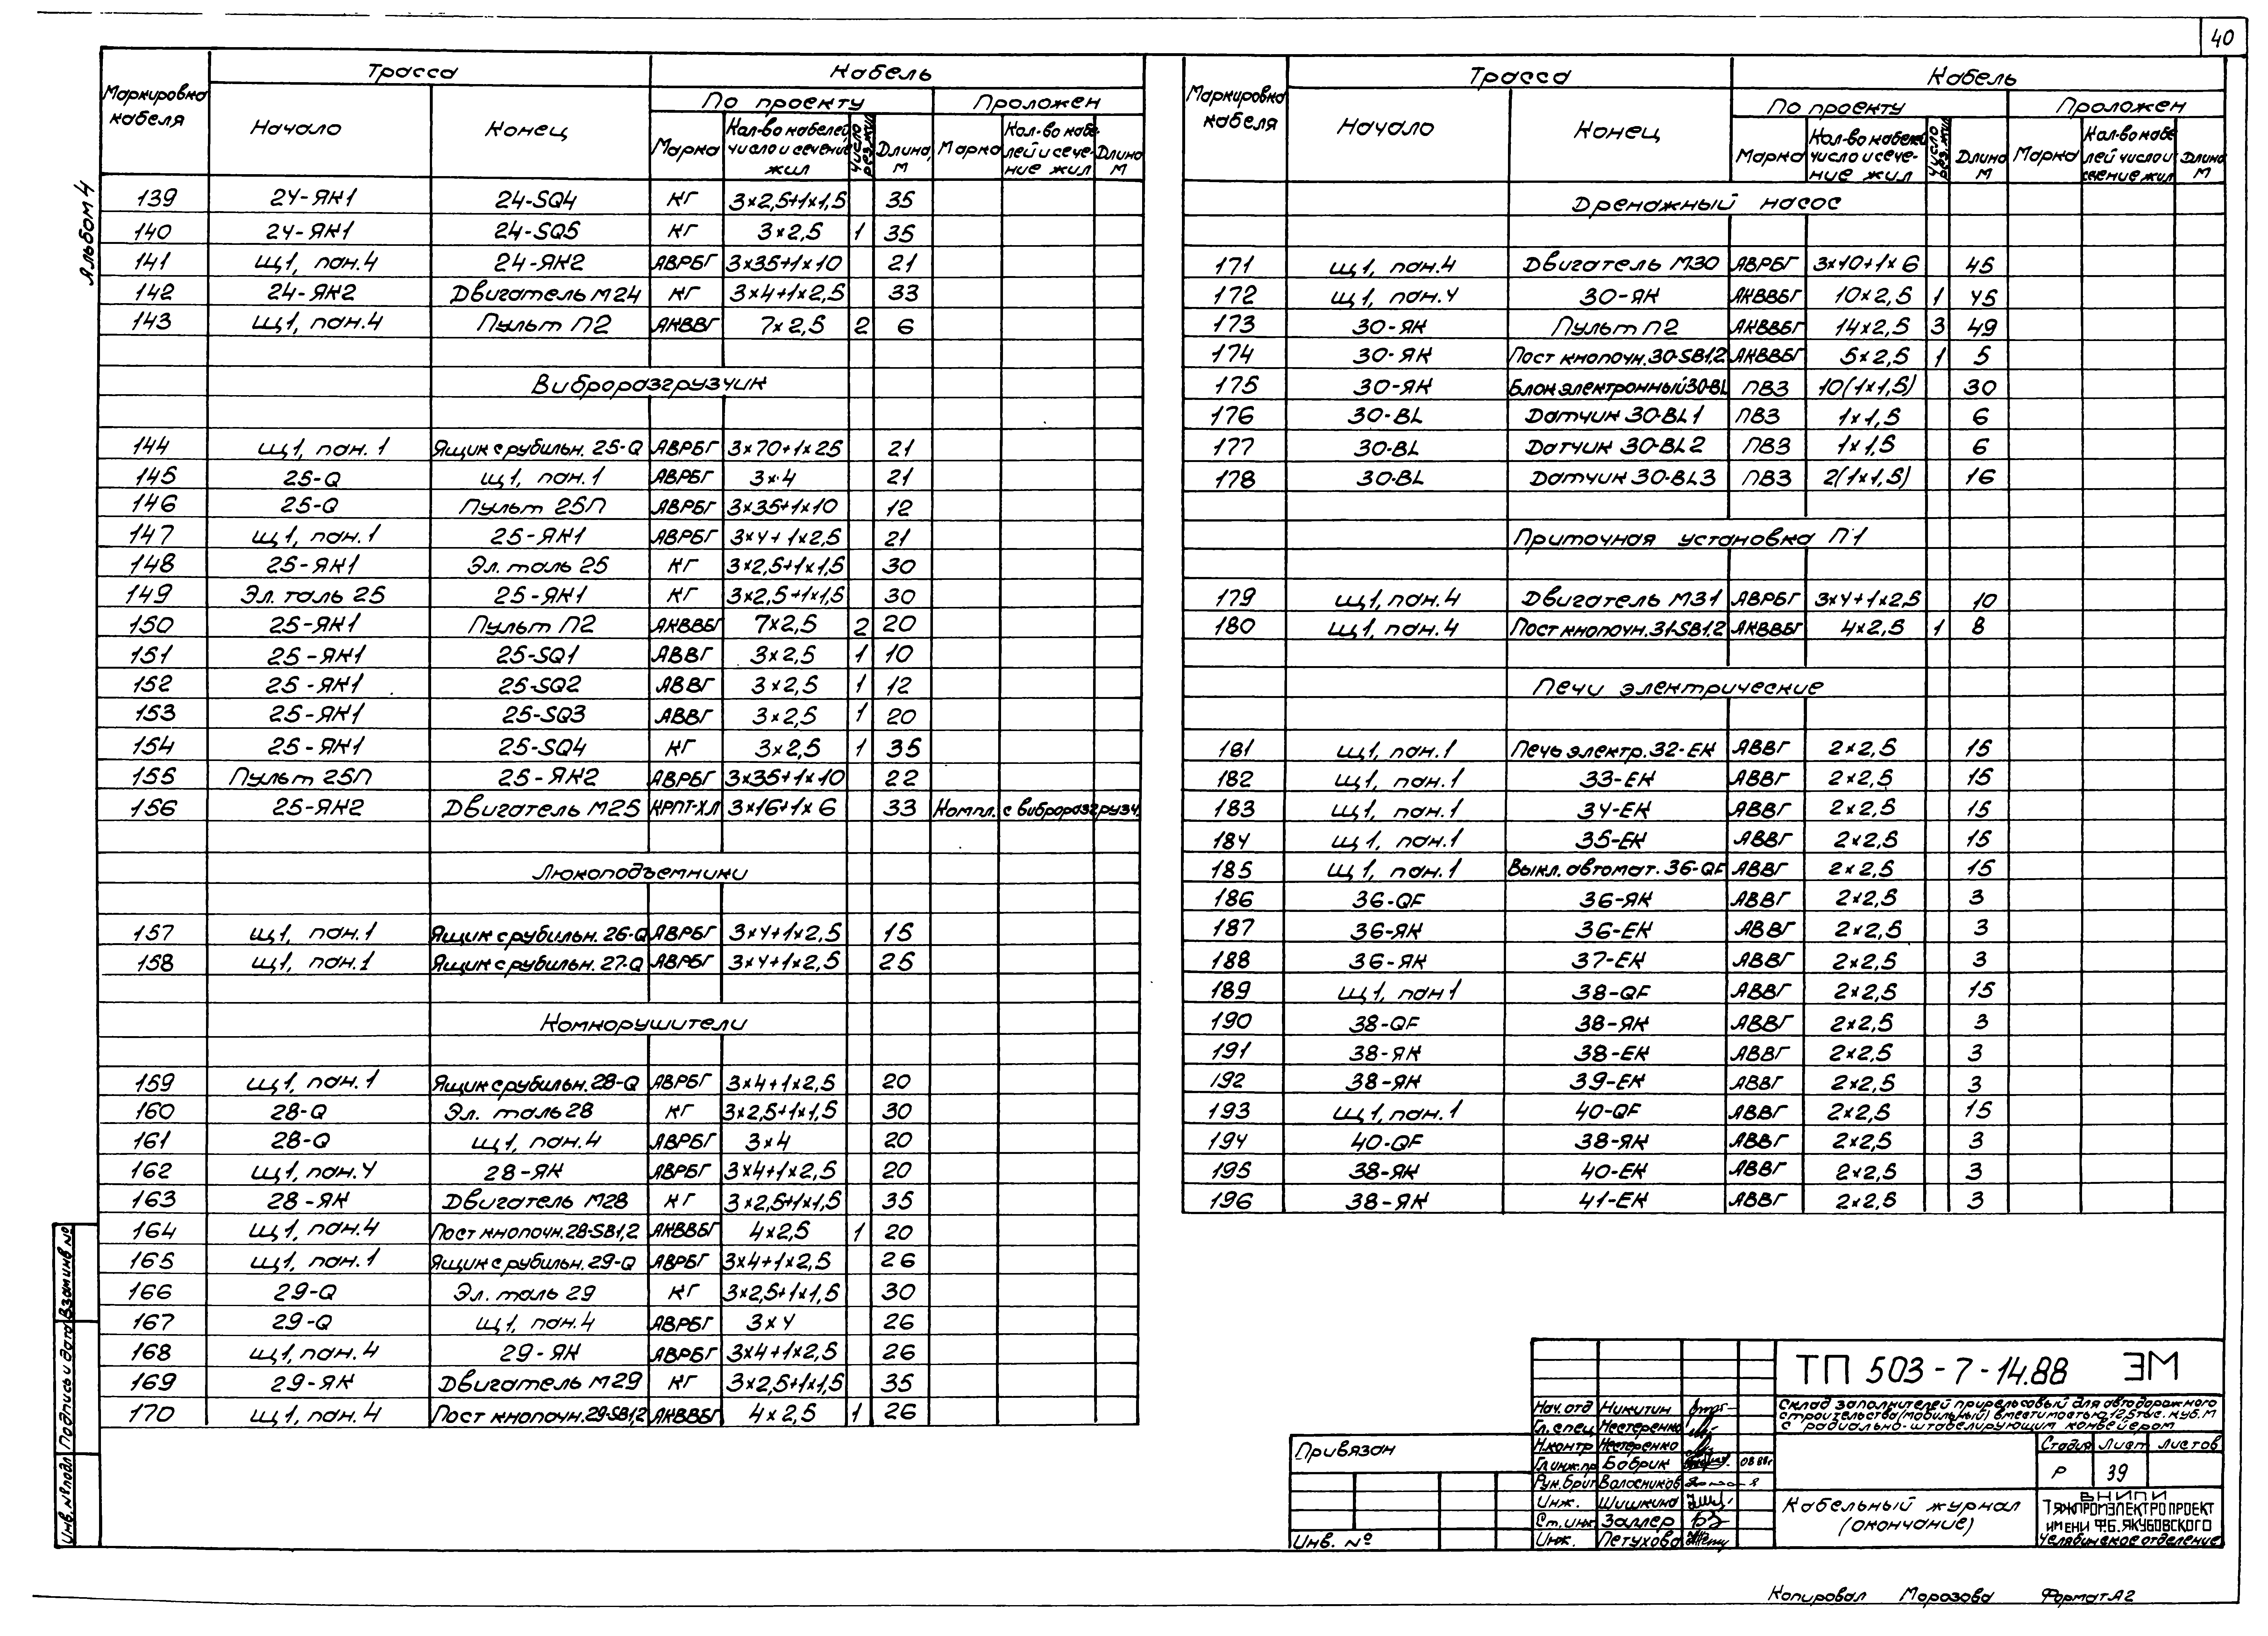 40
Альбом 4
Маркировка кабеля | Трасса | Кабель
Начало | Конец | По проекту | Проложен
Марка | Кол-во кабелей число и сечение жил | Число рез.жил | Длина, м | Марка | Кол-во кабелей и сечение жил | Длина м
139 24-ЯК1 24-SQ4 КГ 3×2,5+1×1,5 35
140 24-ЯК1 24-SQ5 КГ 3×2,5 1 35
141 Щ1, пан.4 24-ЯК2 АВРБГ 3×35+1×10 21
142 24-ЯК2 Двигатель М24 КГ 3×4+1×2,5 33
143 Щ1, пан.4 Пульт П2 АКВВГ 7×2,5 2 6
Виброразгрузчик
144 Щ1, пан.1 Ящик с рубильн. 25-Q АВРБГ 3×70+1×25 21
145 25-Q Щ1, пан.1 АВРБГ 3×4 21
146 25-Q Пульт 25П АВРБГ 3×35+1×10 12
147 Щ1, пан.1 25-ЯК1 АВРБГ 3×4+1×2,5 21
148 25-ЯК1 Эл. таль 25 КГ 3×2,5+1×1,5 30
149 Эл. таль 25 25-ЯК1 КГ 3×2,5+1×1,5 30
150 25-ЯК1 Пульт П2 АКВВБГ 7×2,5 2 20
151 25-ЯК1 25-SQ1 АВВГ 3×2,5 1 10
152 25-ЯК1 25-SQ2 АВВГ 3×2,5 1 12
153 25-ЯК1 25-SQ3 АВВГ 3×2,5 1 20
154 25-ЯК1 25-SQ4 КГ 3×2,5 1 35
155 Пульт 25П 25-ЯК2 АВРБГ 3×35+1×10 22
156 25-ЯК2 Двигатель М25 КРПТ-ХЛ 3×16+1×6 33 Компл. с виброразгрузч.
Люкоподъемники
157 Щ1, пан.1 Ящик с рубильн. 26-Q АВРБГ 3×4+1×2,5 15
158 Щ1, пан.1 Ящик с рубильн. 27-Q АВРБГ 3×4+1×2,5 25
Комкорушители
159 Щ1, пан.1 Ящик с рубильн. 28-Q АВРБГ 3×4+1×2,5 20
160 28-Q Эл. таль 28 КГ 3×2,5+1×1,5 30
161 28-Q Щ1, пан.4 АВРБГ 3×4 20
162 Щ1, пан.4 28-ЯК АВРБГ 3×4+1×2,5 20
163 28-ЯК Двигатель М28 КГ 3×2,5+1×1,5 35
164 Щ1, пан.4 Пост кнопочн. 28-SB1,2 АКВВБГ 4×2,5 1 20
165 Щ1, пан.1 Ящик с рубильн. 29-Q АВРБГ 3×4+1×2,5 26
166 29-Q Эл. таль 29 КГ 3×2,5+1×1,5 30
167 29-Q Щ1, пан.4 АВРБГ 3×4 26
168 Щ1, пан.4 29-ЯК АВРБГ 3×4+1×2,5 26
169 29-ЯК Двигатель М29 КГ 3×2,5+1×1,5 35
170 Щ1, пан.4 Пост кнопочн. 29-SB1,2 АКВВБГ 4×2,5 1 26
Маркировка кабеля | Трасса | Кабель
Начало | Конец | По проекту | Проложен
Марка | Кол-во кабелей число и сечение жил | Число рез.жил | Длина м | Марка | Кол-во кабелей число и сечение жил | Длина м
Дренажный насос
171 Щ1, пан.4 Двигатель М30 АВРБГ 3×10+1×6 45
172 Щ1, пан.4 30-ЯК АКВВБГ 10×2,5 1 45
173 30-ЯК Пульт П2 АКВВБГ 14×2,5 3 49
174 30-ЯК Пост кнопочн. 30-SB1,2 АКВВБГ 5×2,5 1 5
175 30-ЯК Блок электронный 30-BL ПВ3 10(1×1,5) 30
176 30-BL Датчик 30-BL1 ПВ3 1×1,5 6
177 30-BL Датчик 30-BL2 ПВ3 1×1,5 6
178 30-BL Датчик 30-BL3 ПВ3 2(1×1,5) 16
Приточная установка П1
179 Щ1, пан.4 Двигатель М31 АВРБГ 3×4+1×2,5 10
180 Щ1, пан.4 Пост кнопочн. 31-SB1,2 АКВВБГ 4×2,5 1 8
Печи электрические
181 Щ1, пан.1 Печь электр. 32-ЕК АВВГ 2×2,5 15
182 Щ1, пан.1 33-ЕК АВВГ 2×2,5 15
183 Щ1, пан.1 34-ЕК АВВГ 2×2,5 15
184 Щ1, пан.1 35-ЕК АВВГ 2×2,5 15
185 Щ1, пан.1 Выкл. автомат. 36-QF АВВГ 2×2,5 15
186 36-QF 36-ЯК АВВГ 2×2,5 3
187 36-ЯК 36-ЕК АВВГ 2×2,5 3
188 36-ЯК 37-ЕК АВВГ 2×2,5 3
189 Щ1, пан1 38-QF АВВГ 2×2,5 15
190 38-QF 38-ЯК АВВГ 2×2,5 3
191 38-ЯК 38-ЕК АВВГ 2×2,5 3
192 38-ЯК 39-ЕК АВВГ 2×2,5 3
193 Щ1, пан.1 40-QF АВВГ 2×2,5 15
194 40-QF 38-ЯК АВВГ 2×2,5 3
195 38-ЯК 40-ЕК АВВГ 2×2,5 3
196 38-ЯК 41-ЕК АВВГ 2×2,5 3
Инв. № подл Подпись и дата Взам инв №
Привязан
Инв. №
Нач. отд Никитин
Гл. спец Нестеренко
Н.контр Нестеренко
Гл.инж.пр Бобрик
Рук.бриг Волосников
Инж. Шишкина
Ст. инж Заллер
Инж. Петухова
ТП 503-7-14.88 ЭМ
Склад заполнителей прирельсовый для автодорожного
строительства (мобильный) вместимостью 12,5 тыс. куб.м
с радиально-штабелирующим конвейером
Стадия Лист Листов
Р 39
Кабельный журнал
(окончание)
ВНИПИ
ТЯЖПРОМЭЛЕКТРОПРОЕКТ
ИМЕНИ Ф.Б. ЯКУБОВСКОГО
Челябинское отделение
Копировал Морозова Формат А2